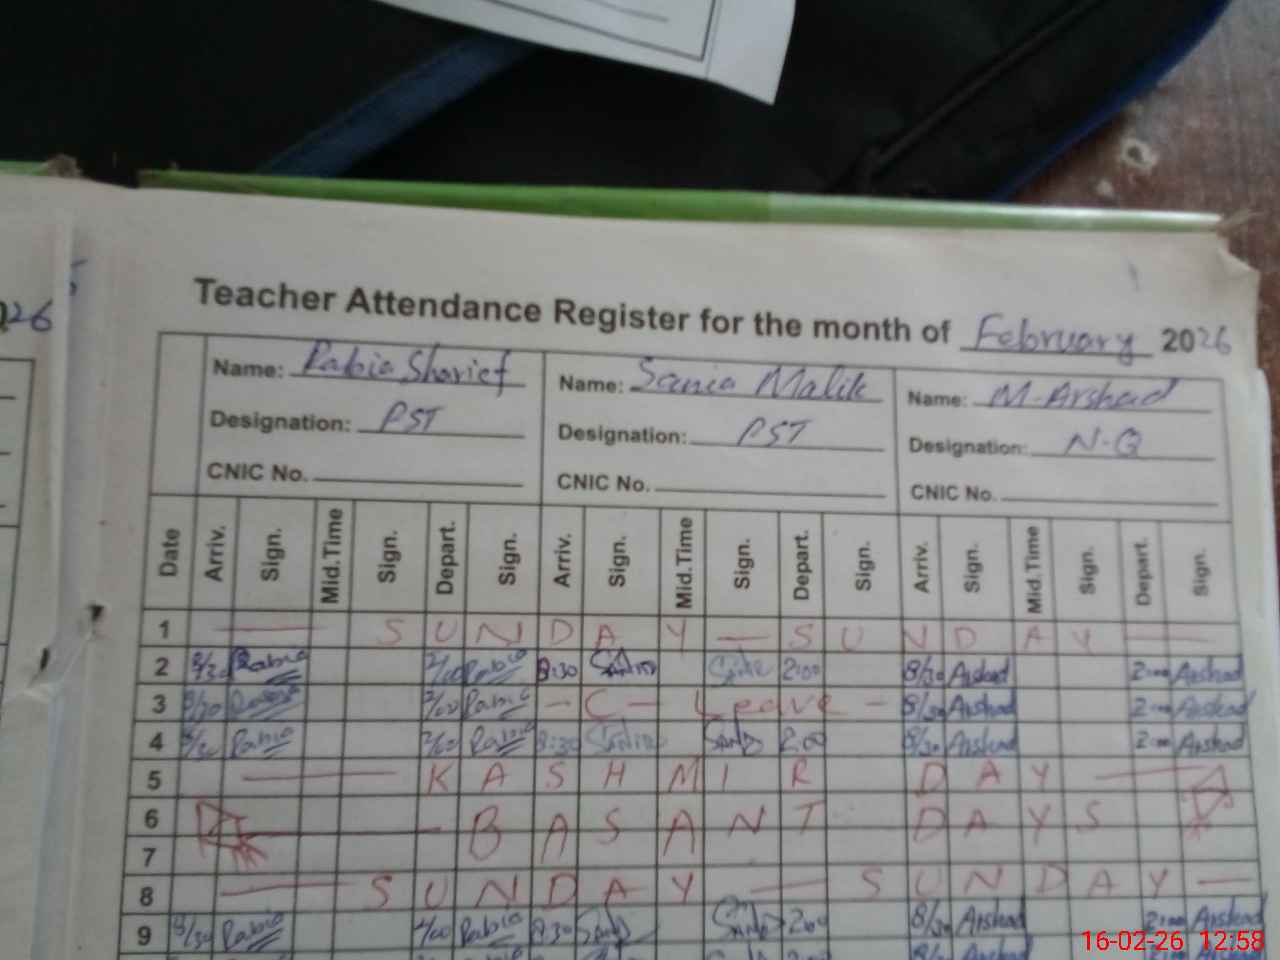 026
Teacher Attendance Register for the month of February 2026
Name: Rabia Sharief Name: Sania Malik Name: M-Arshad
Designation: PST Designation: PST Designation: N-Q
CNIC No. CNIC No. CNIC No.
Date Arriv. Sign. Mid.Time Sign. Depart. Sign. Arriv. Sign. Mid.Time Sign. Depart. Sign. Arriv. Sign. Mid.Time Sign. Depart. Sign.
1 — S U N D A Y — S U N D A Y —
2 8/30 Rabia 2/00 Rabia 8:30 Sania Sania 2:00 8/30 Arshad 2:00 Arshad
3 8/30 Rabia 2/00 Rabia — C — Leave — 8/30 Arshad 2:00 Arshad
4 8/30 Rabia 2/00 Rabia 8:30 Sania 2:00 8/30 Arshad 2:00 Arshad
5 — K A S H M I R D A Y —
6 — B A S A N T D A Y S
7
8 — S U N D A Y — S U N D A Y —
9 8/30 Rabia 2/00 Rabia 8:30 2:00 8/30 Arshad 2:00 Arshad
16-02-26 12:58